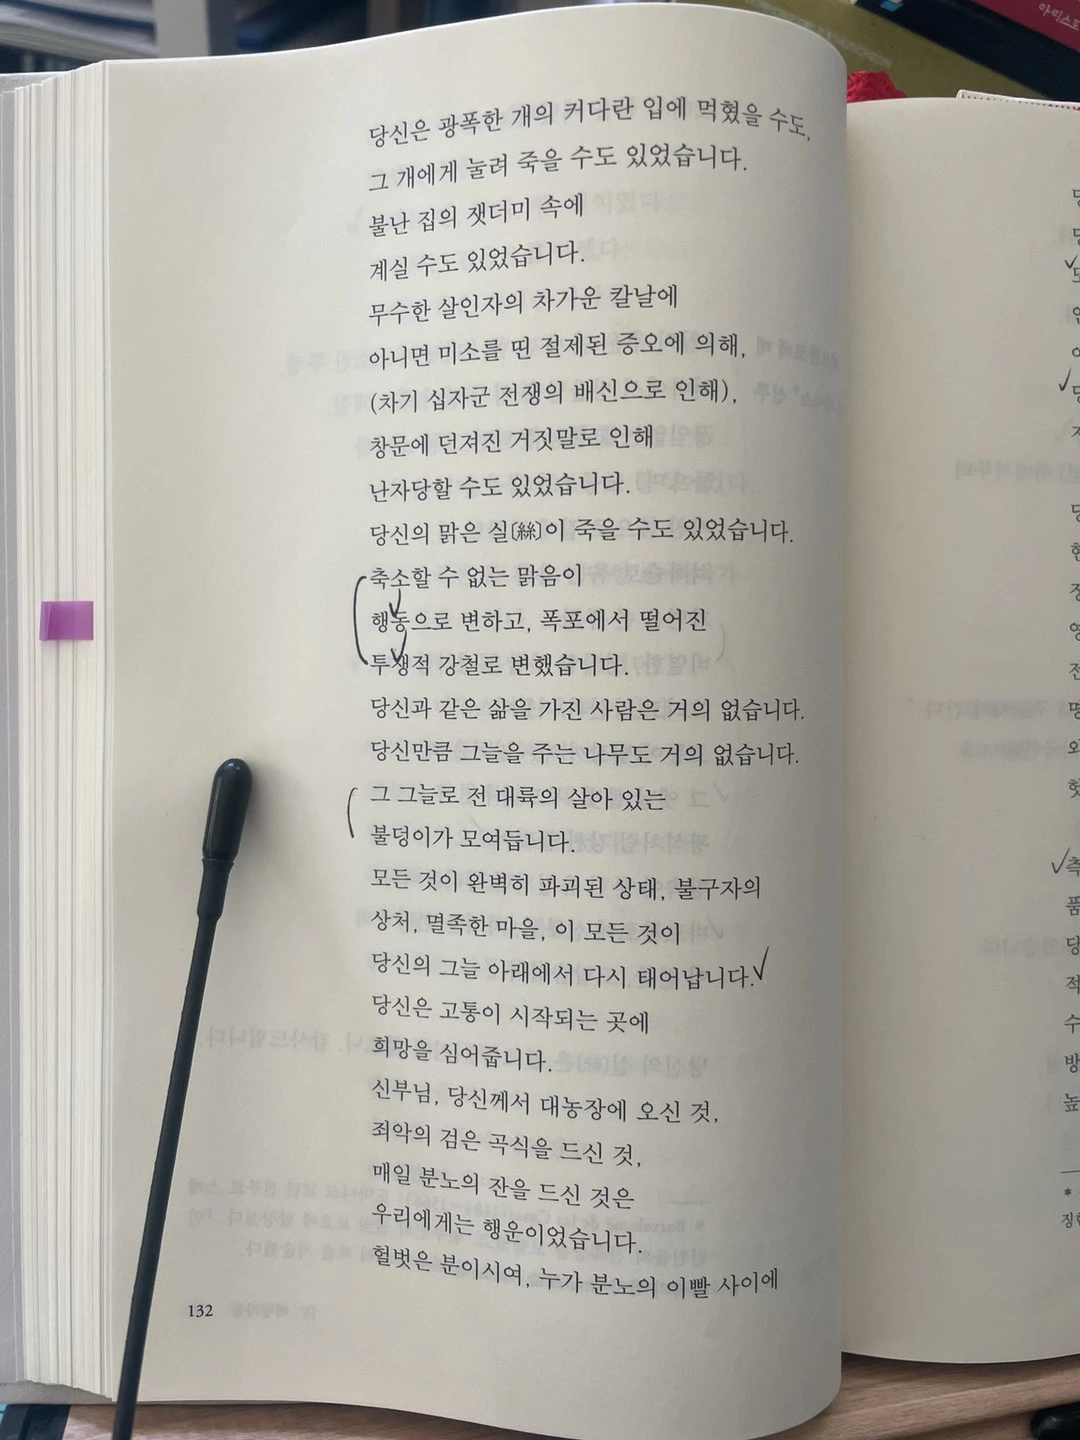 당신은 광폭한 개의 커다란 입에 먹혔을 수도,
그 개에게 눌려 죽을 수도 있었습니다.
불난 집의 잿더미 속에
계실 수도 있었습니다.
무수한 살인자의 차가운 칼날에
아니면 미소를 띤 절제된 증오에 의해,
(차기 십자군 전쟁의 배신으로 인해),
창문에 던져진 거짓말로 인해
난자당할 수도 있었습니다.
당신의 맑은 실〔絲〕이 죽을 수도 있었습니다.
축소할 수 없는 맑음이
행동으로 변하고, 폭포에서 떨어진
투쟁적 강철로 변했습니다.
당신과 같은 삶을 가진 사람은 거의 없습니다.
당신만큼 그늘을 주는 나무도 거의 없습니다.
그 그늘로 전 대륙의 살아 있는
불덩이가 모여듭니다.
모든 것이 완벽히 파괴된 상태, 불구자의
상처, 멸족한 마을, 이 모든 것이
당신의 그늘 아래에서 다시 태어납니다.
당신은 고통이 시작되는 곳에
희망을 심어줍니다.
신부님, 당신께서 대농장에 오신 것,
죄악의 검은 곡식을 드신 것,
매일 분노의 잔을 드신 것은
우리에게는 행운이었습니다.
헐벗은 분이시여, 누가 분노의 이빨 사이에
132